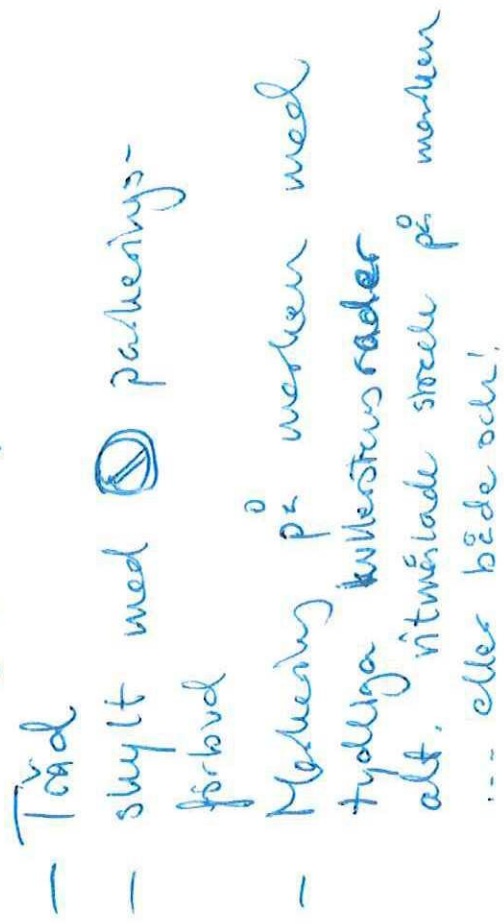 — Träd
— skylt med parkerings-
förbud
— Markering på marken med
tydliga kullerstensrader
alt. vitmålade streck på marken
... eller både och!